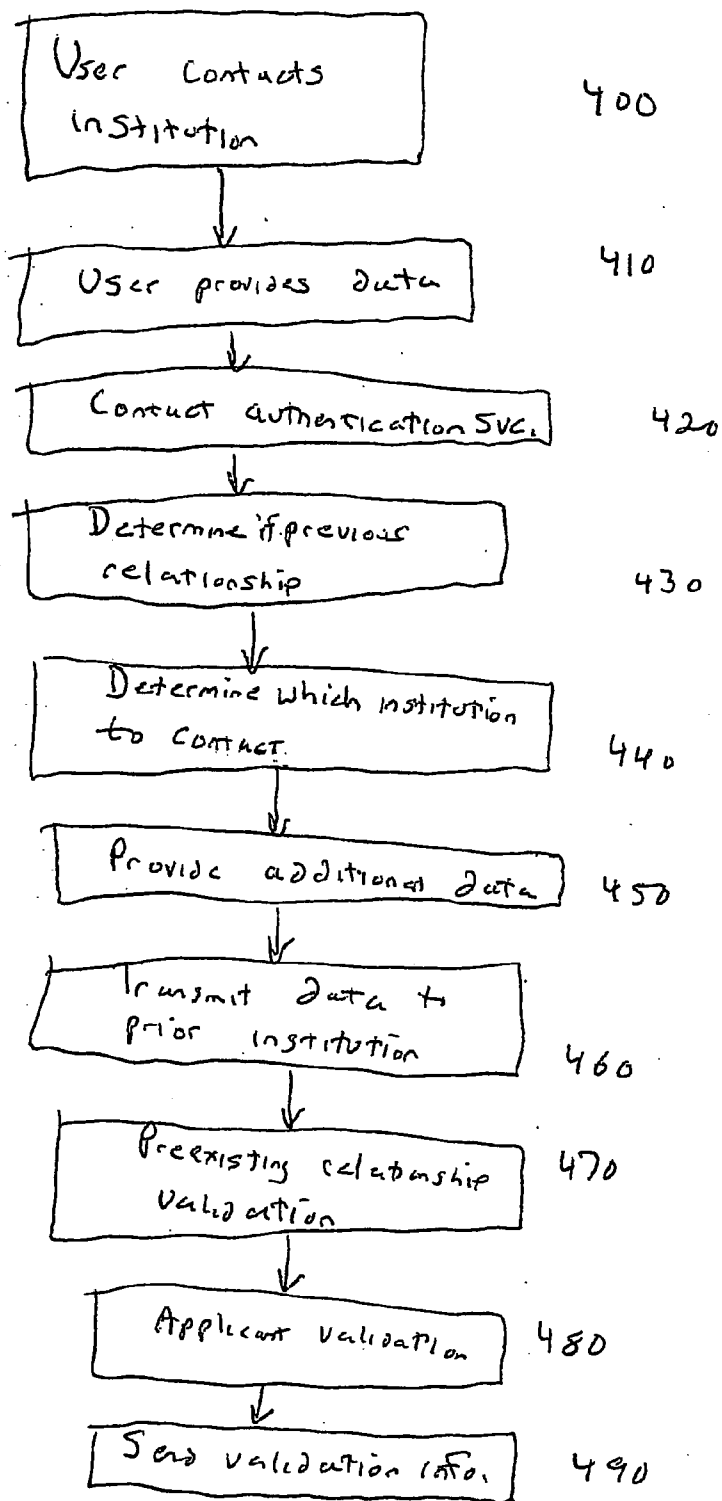 User contacts
institution
400
User provides data
410
Contact authentication svc.
420
Determine if previous
relationship
430
Determine which institution
to contact.
440
Provide additional data
450
Transmit data to
prior institution
460
Preexisting relationship
validation
470
Applicant validation
480
Send validation info.
490